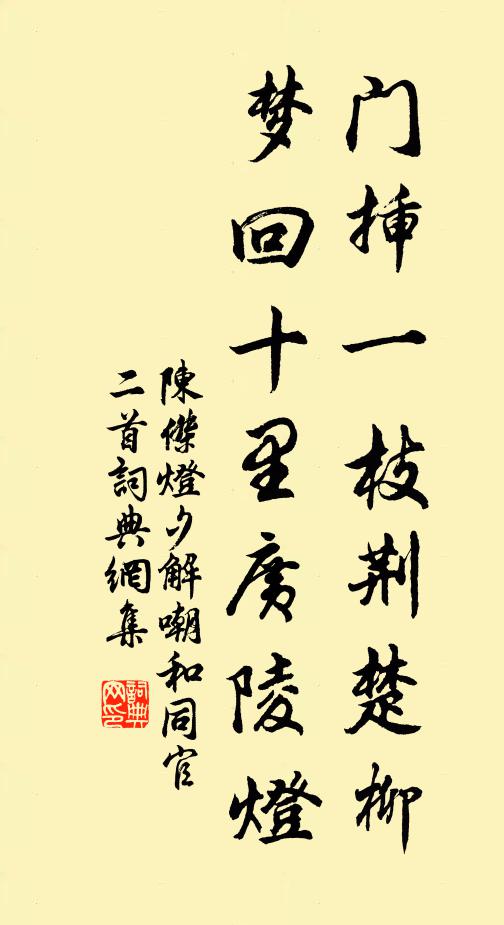 门揷一枝荆楚柳
梦回十里廣陵燈
陳傑燈夕解嘲和同官
二首詞典網集
詞典
网印